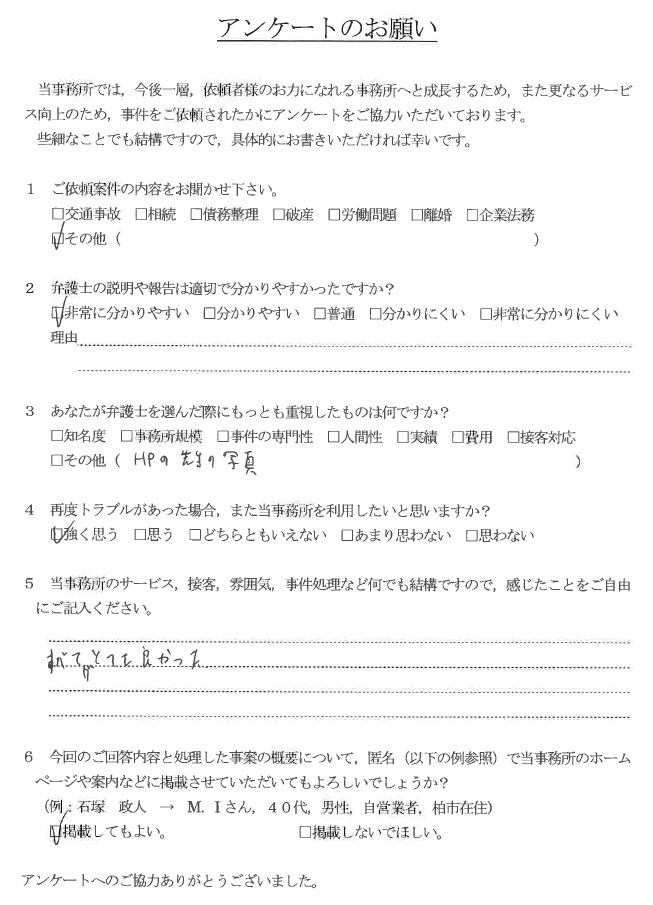 アンケートのお願い
当事務所では，今後一層，依頼者様のお力になれる事務所へと成長するため，また更なるサービ
ス向上のため，事件をご依頼されたかにアンケートをご協力いただいております。
些細なことでも結構ですので，具体的にお書きいただければ幸いです。
１　ご依頼案件の内容をお聞かせ下さい。
□交通事故　□相続　□債務整理　□破産　□労働問題　□離婚　□企業法務
☑その他（　　　）
２　弁護士の説明や報告は適切で分かりやすかったですか？
☑非常に分かりやすい　□分かりやすい　□普通　□分かりにくい　□非常に分かりにくい
理由
３　あなたが弁護士を選んだ際にもっとも重視したものは何ですか？
□知名度　□事務所規模　□事件の専門性　□人間性　□実績　□費用　□接客対応
□その他（　HPの先生の写真　）
４　再度トラブルがあった場合，また当事務所を利用したいと思いますか？
☑強く思う　□思う　□どちらともいえない　□あまり思わない　□思わない
５　当事務所のサービス，接客，雰囲気，事件処理など何でも結構ですので，感じたことをご自由
にご記入ください。
すべてがとても良かった
６　今回のご回答内容と処理した事案の概要について，匿名（以下の例参照）で当事務所のホーム
ページや案内などに掲載させていただいてもよろしいでしょうか？
（例：石塚　政人　→　Ｍ．Ｉさん，４０代，男性，自営業者，柏市在住）
☑掲載してもよい。　　　□掲載しないでほしい。
アンケートへのご協力ありがとうございました。